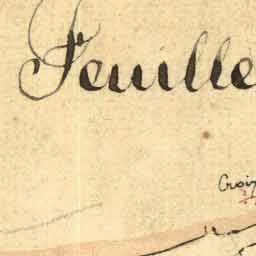 Feuille
Croix